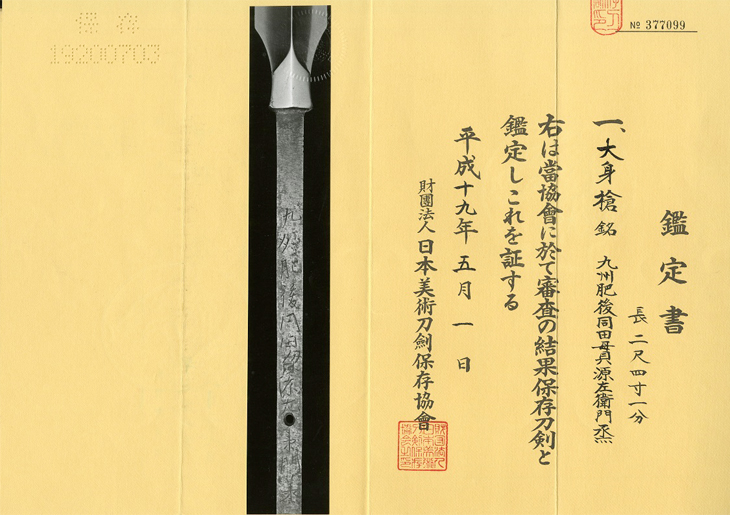 No 377099
鑑定書
長 二尺四寸一分
一、大身槍 銘 九州肥後同田貫源左衛門
右は當協會に於て審査の結果保存刀剣と
鑑定しこれを証する
平成十九年五月一日
財團法人 日本美術刀劍保存協會
保存
19200703
九州肥後同田貫源